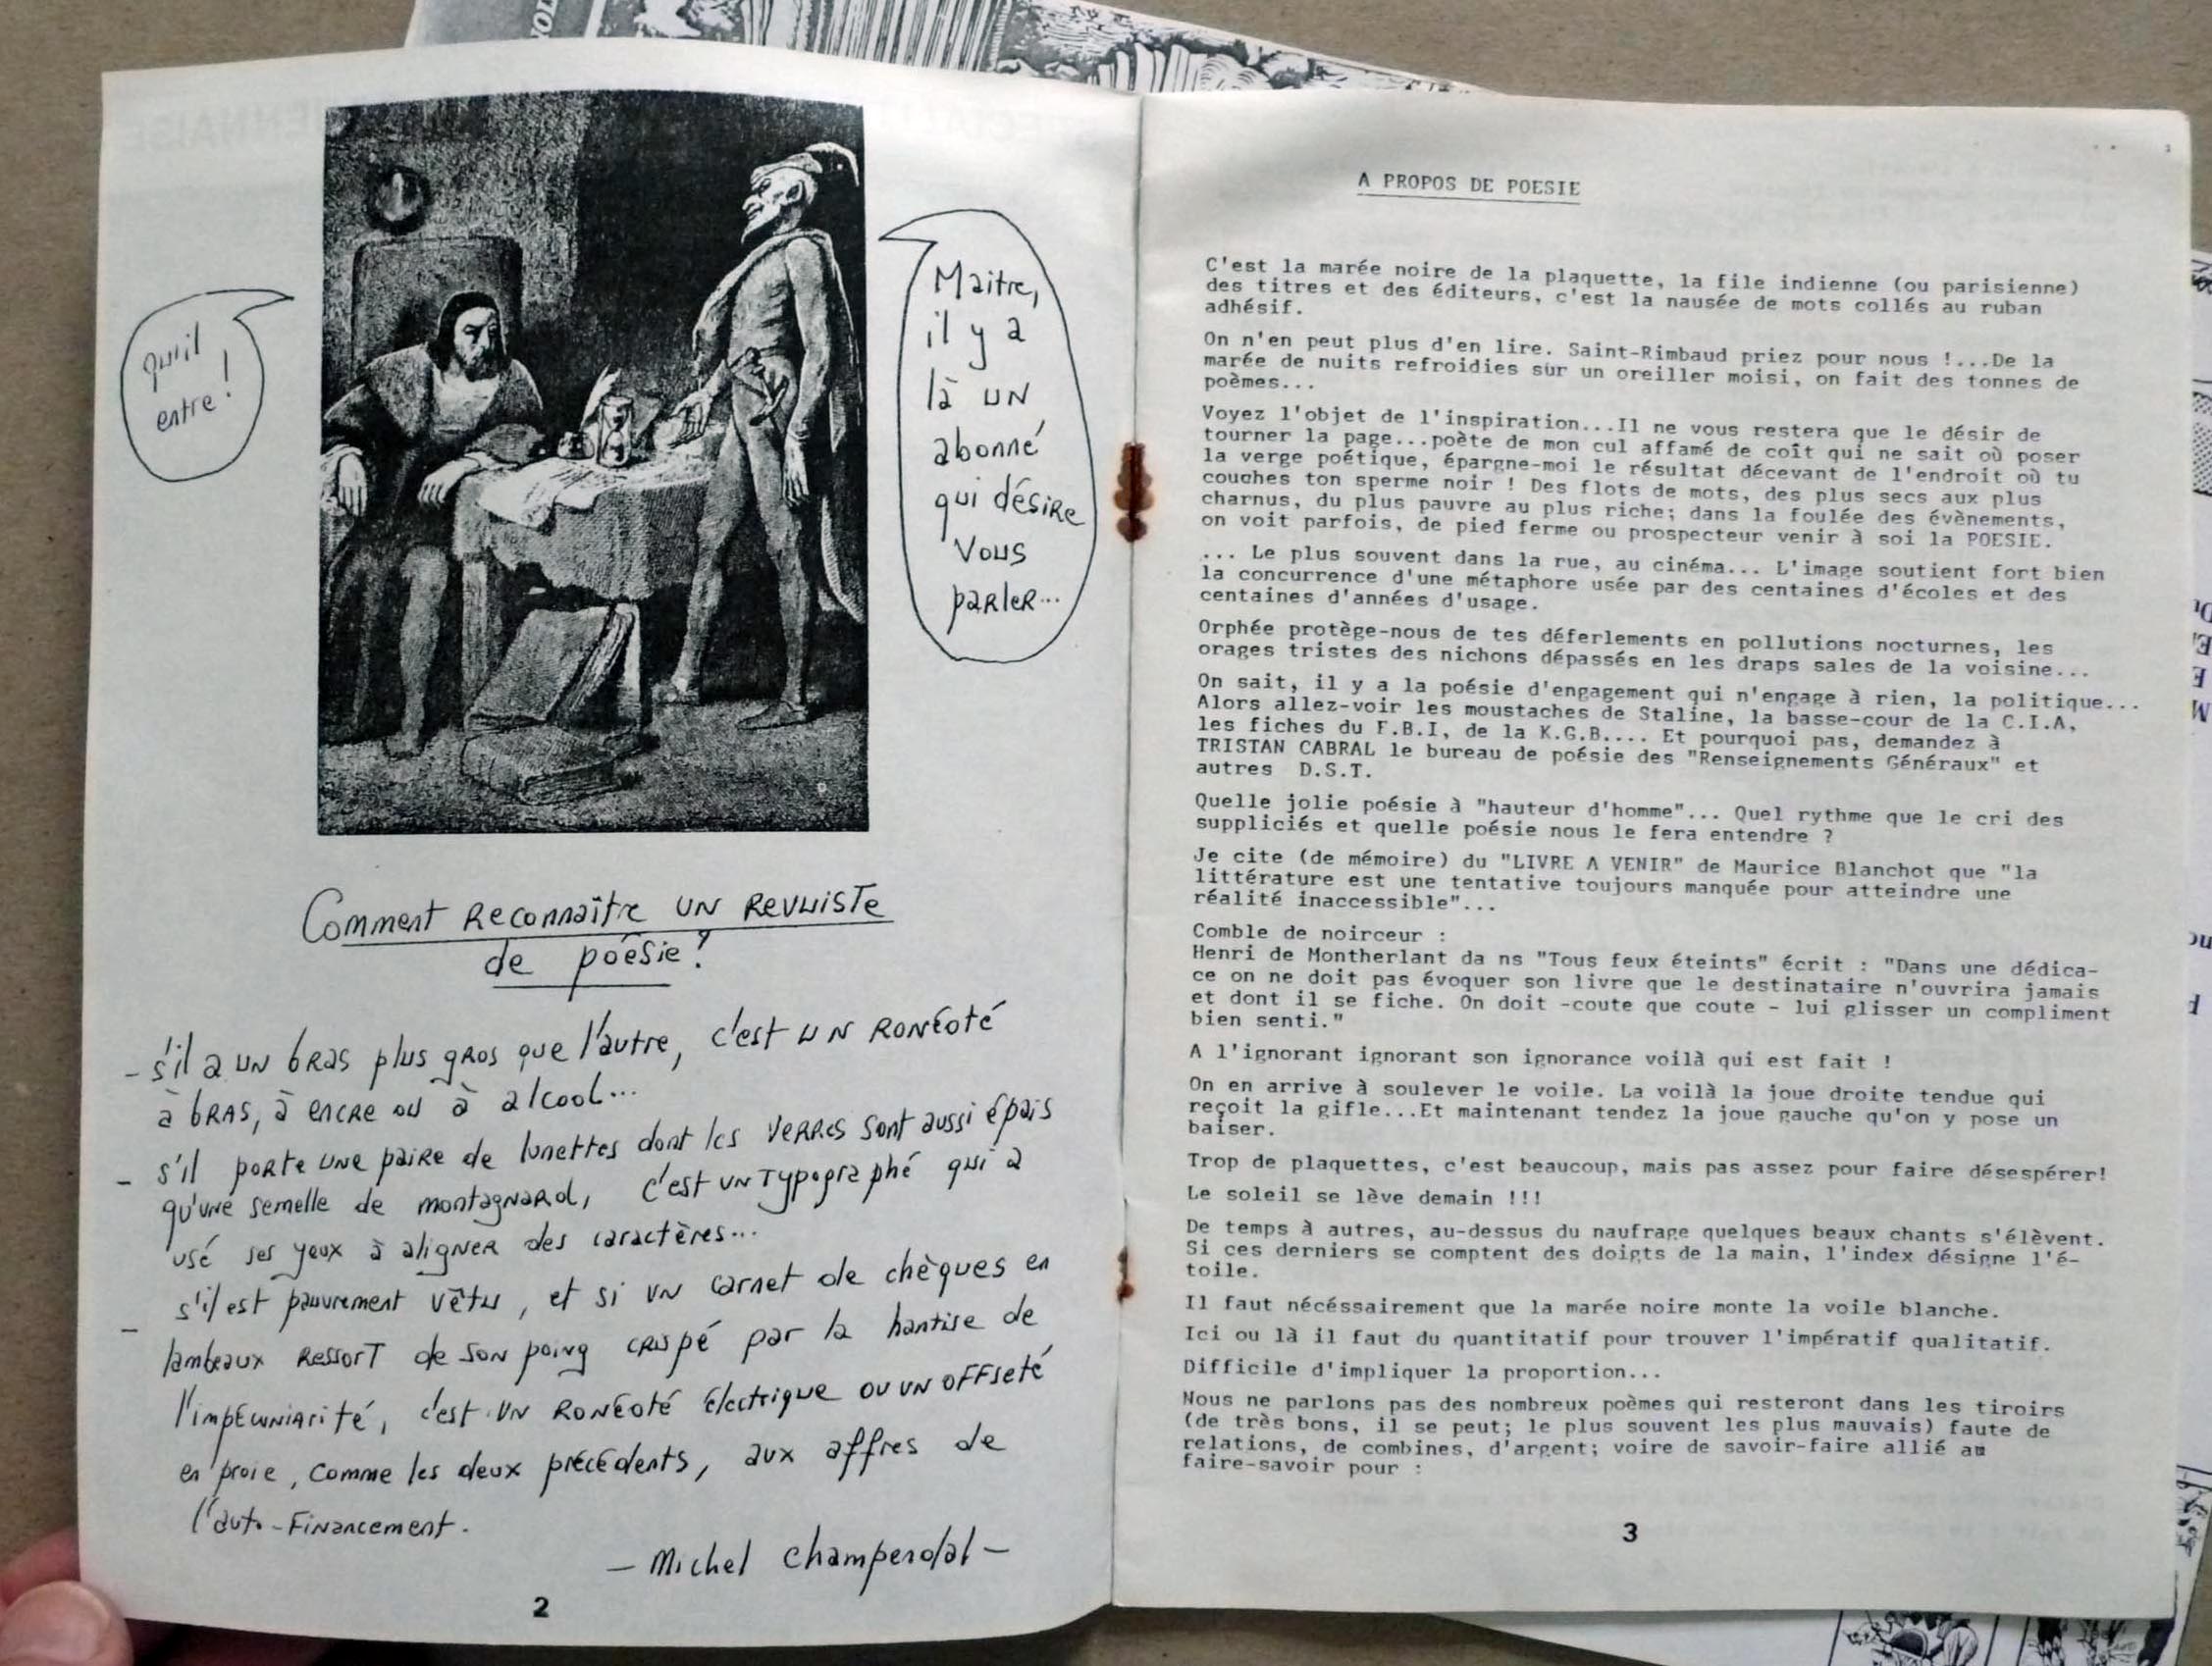 qu'il
entre !
Maitre,
il y a
là un
abonné
qui désire
vous
parler...
Comment reconnaître un revuiste
de poésie ?
- s'il a un bras plus gros que l'autre, c'est un ronéoté
à bras, à encre ou à alcool...
- s'il porte une paire de lunettes dont les verres sont aussi épais
qu'une semelle de montagnard, c'est un typographé qui a
usé ses yeux à aligner des caractères...
- s'il est pauvrement vêtu, et si un carnet de chèques en
lambeaux ressort de son poing crispé par la hantise de
l'impécuniarité, c'est un ronéoté électrique ou un offseté
en proie, comme les deux précédents, aux affres de
l'auto-financement.
- Michel Champendal -
2
A PROPOS DE POESIE
C'est la marée noire de la plaquette, la file indienne (ou parisienne)
des titres et des éditeurs, c'est la nausée de mots collés au ruban
adhésif.
On n'en peut plus d'en lire. Saint-Rimbaud priez pour nous !...De la
marée de nuits refroidies sur un oreiller moisi, on fait des tonnes de
poèmes...
Voyez l'objet de l'inspiration...Il ne vous restera que le désir de
tourner la page...poète de mon cul affamé de coît qui ne sait où poser
la verge poétique, épargne-moi le résultat décevant de l'endroit où tu
couches ton sperme noir ! Des flots de mots, des plus secs aux plus
charnus, du plus pauvre au plus riche; dans la foulée des évènements,
on voit parfois, de pied ferme ou prospecteur venir à soi la POESIE.
... Le plus souvent dans la rue, au cinéma... L'image soutient fort bien
la concurrence d'une métaphore usée par des centaines d'écoles et des
centaines d'années d'usage.
Orphée protège-nous de tes déferlements en pollutions nocturnes, les
orages tristes des nichons dépassés en les draps sales de la voisine...
On sait, il y a la poésie d'engagement qui n'engage à rien, la politique...
Alors allez-voir les moustaches de Staline, la basse-cour de la C.I.A,
les fiches du F.B.I, de la K.G.B.... Et pourquoi pas, demandez à
TRISTAN CABRAL le bureau de poésie des "Renseignements Généraux" et
autres D.S.T.
Quelle jolie poésie à "hauteur d'homme"... Quel rythme que le cri des
suppliciés et quelle poésie nous le fera entendre ?
Je cite (de mémoire) du "LIVRE A VENIR" de Maurice Blanchot que "la
littérature est une tentative toujours manquée pour atteindre une
réalité inaccessible"...
Comble de noirceur :
Henri de Montherlant da ns "Tous feux éteints" écrit : "Dans une dédica-
ce on ne doit pas évoquer son livre que le destinataire n'ouvrira jamais
et dont il se fiche. On doit -coute que coute - lui glisser un compliment
bien senti."
A l'ignorant ignorant son ignorance voilà qui est fait !
On en arrive à soulever le voile. La voilà la joue droite tendue qui
reçoit la gifle...Et maintenant tendez la joue gauche qu'on y pose un
baiser.
Trop de plaquettes, c'est beaucoup, mais pas assez pour faire désespérer!
Le soleil se lève demain !!!
De temps à autres, au-dessus du naufrage quelques beaux chants s'élèvent.
Si ces derniers se comptent des doigts de la main, l'index désigne l'é-
toile.
Il faut nécéssairement que la marée noire monte la voile blanche.
Ici ou là il faut du quantitatif pour trouver l'impératif qualitatif.
Difficile d'impliquer la proportion...
Nous ne parlons pas des nombreux poèmes qui resteront dans les tiroirs
(de très bons, il se peut; le plus souvent les plus mauvais) faute de
relations, de combines, d'argent; voire de savoir-faire allié au
faire-savoir pour :
3